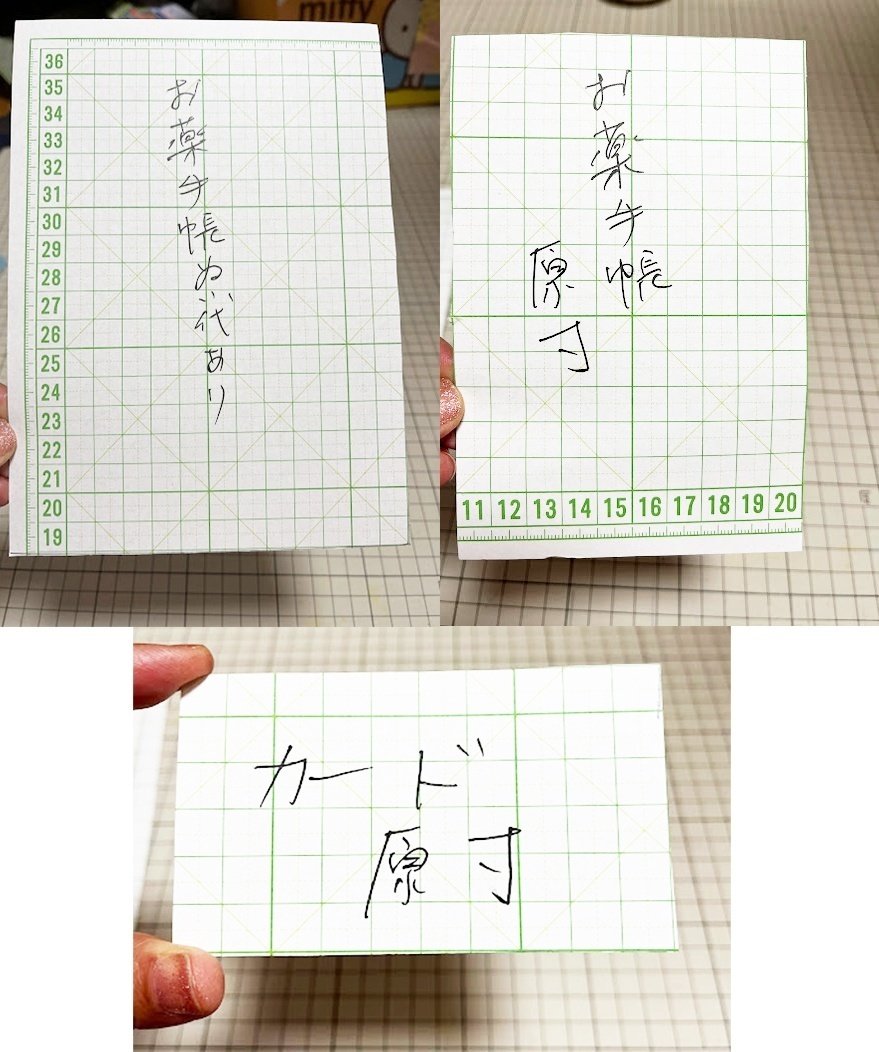 miffy
36
35
34
33
32
31
30
29
28
27
26
25
24
23
22
21
20
19
お薬手帳ぬい代あり
お薬手帳
原寸
11 12 13 14 15 16 17 18 19 20
カード
原寸